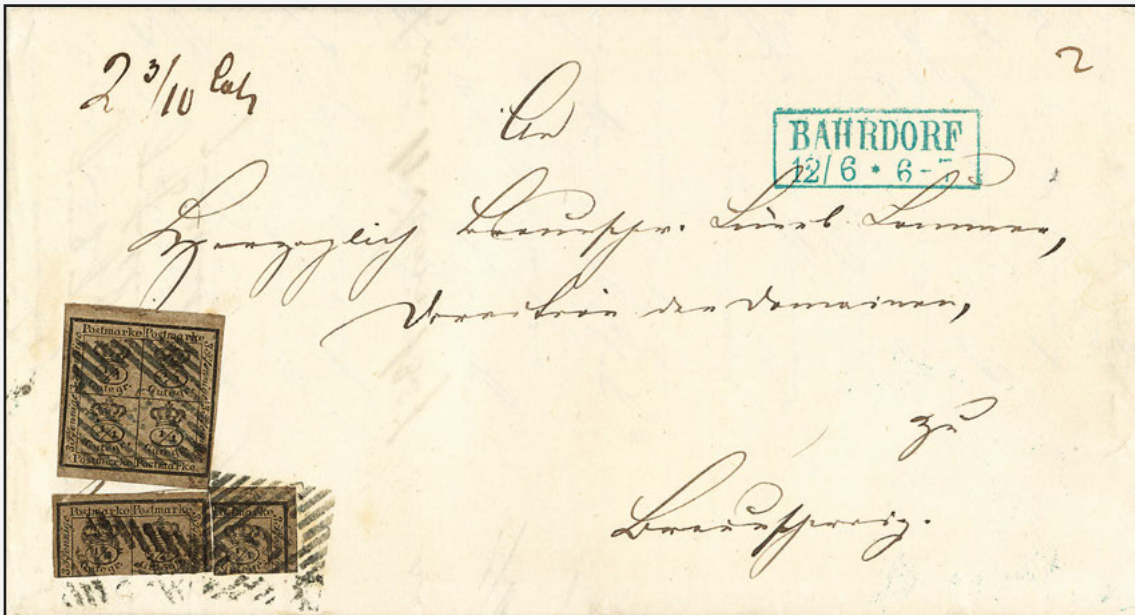 2 3/10 Loth
2
An
BAHRDORF
12/6 * 6-7
Herzoglich Braunschw. Lüneb. Cammer,
Direction der Domainen,
zu
Braunschweig.
Postmarke Postmarke
3 Pfennige
1/4 1/4
Gutegr. Gutegr.
1/4 1/4
Gutegr. Gutegr.
Postmarke Postmarke
Postmarke Postmarke
3 Pfennige
1/4 1/4
Gutegr.